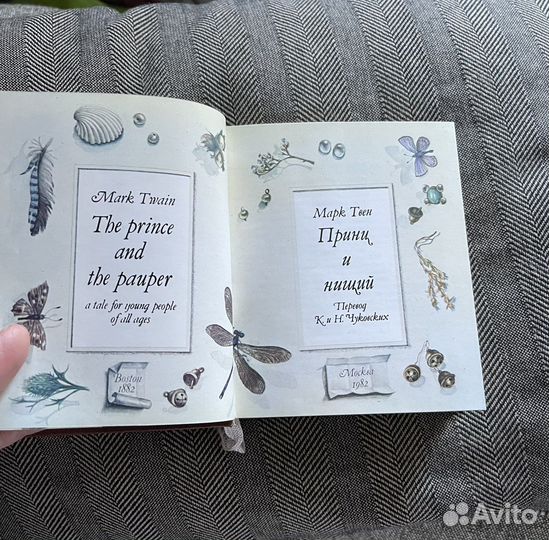 Mark Twain
The prince
and
the pauper
a tale for young people
of all ages
Boston
1882
Марк Твен
Принц
и
нищий
Перевод
К. и Н. Чуковских
Москва
1982
Avito